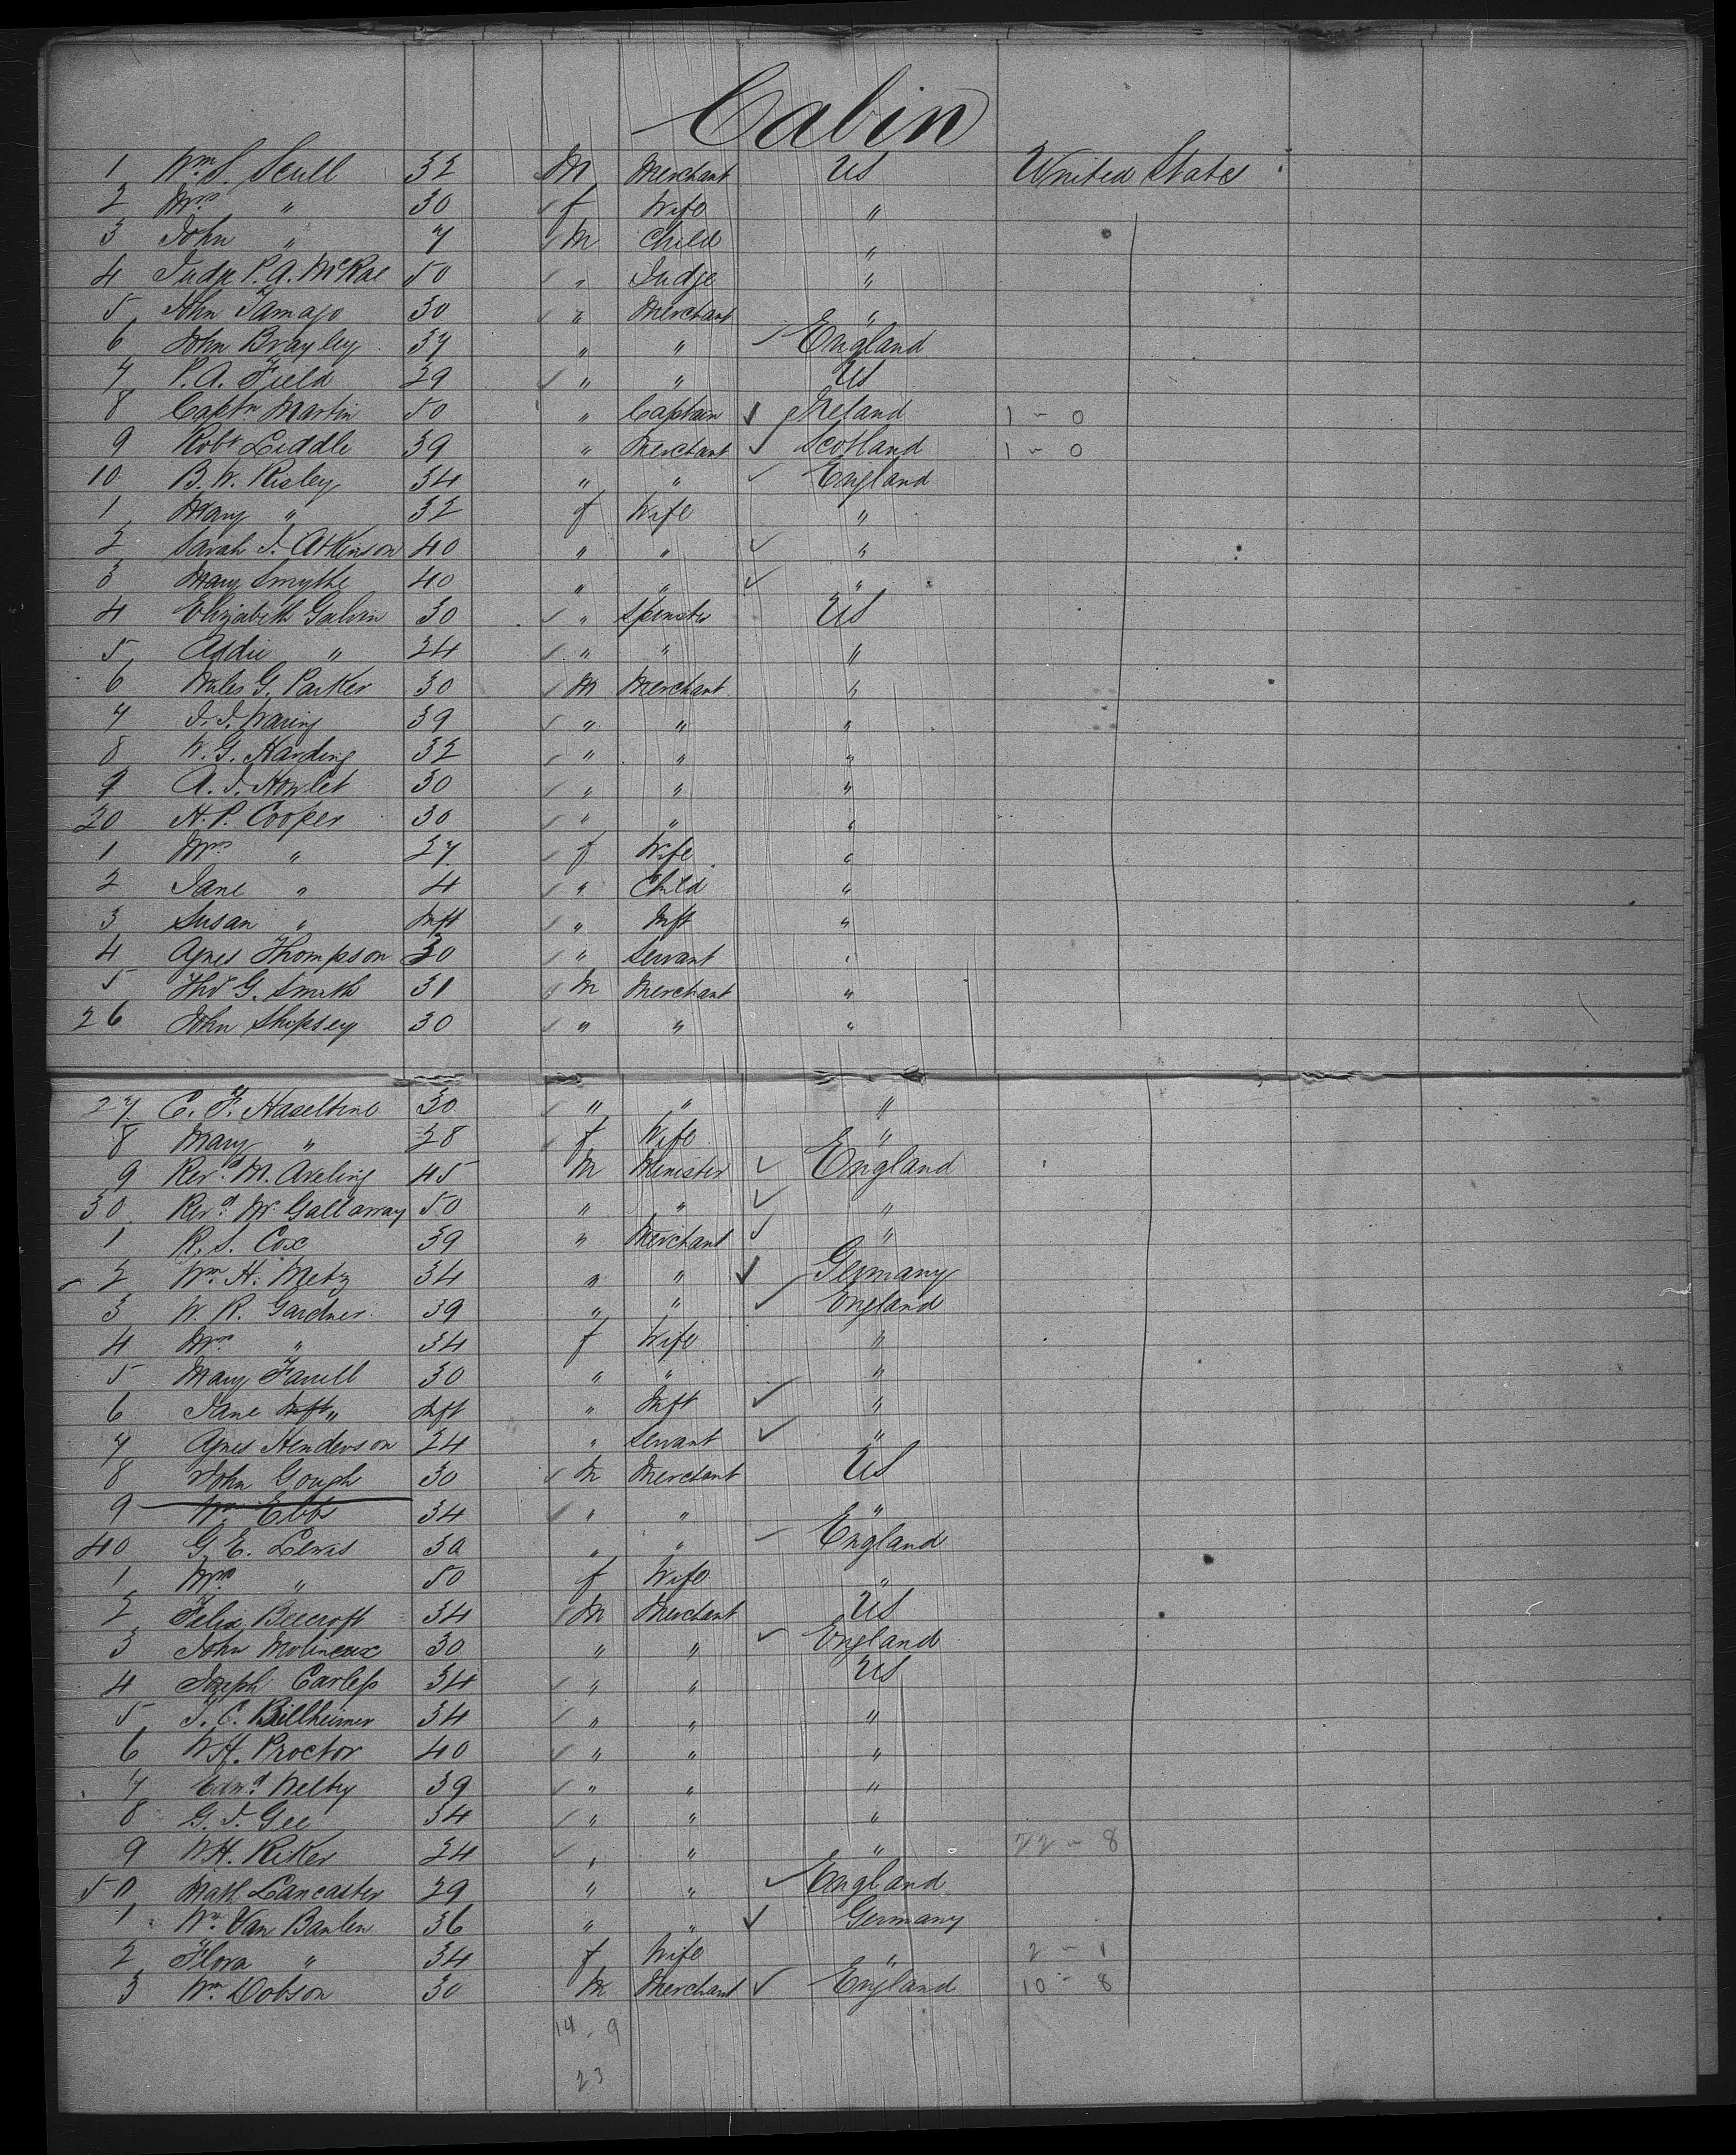 Cabin
1 Wm. S. Scull 32 M Merchant US United States
2 Mrs " 30 f Wife "
3 John " 7 M Child "
4 Judge P. A. McRae 50 " Judge "
5 John Tamajo 30 " Merchant "
6 John Brayley 37 " " England
7 P. A. Field 29 " " US
8 Captn Martin 50 " Captain Ireland 1 - 0
9 Robt Liddle 39 " Merchant Scotland 1 - 0
10 B. W. Risley 34 " " England
1 Mary " 32 f Wife "
2 Sarah J. Atkinson 40 " " "
3 Mary Smythe 40 " " "
4 Elizabeth Galvin 30 " Spinster US
5 Addie " 24 " " "
6 Miles G. Parker 30 M Merchant "
7 J. J. Waring 39 " " "
8 W. G. Harding 32 " " "
9 A. J. Howlet 30 " " "
20 H. P. Cooper 30 " " "
1 Mrs " 27 f Wife "
2 Jane " 4 " Child "
3 Susan " Inft " Inft "
4 Agnes Thompson 30 " Servant "
5 Thos G. Smith 31 M Merchant "
26 John Shipsey 30 " " "
27 C. F. Haseltine 30 " " "
8 Mary " 28 f Wife "
9 Revd M. Aveling 45 M Minister England
30 Revd Mr Gallaway 50 " " "
1 R. S. Cox 39 " Merchant "
2 Wm H. Metz 34 " " Germany
3 W. R. Gardner 39 " " England
4 Mrs " 34 f Wife "
5 Mary Farrell 30 " " "
6 Jane Inft " Inft " Inft "
7 Agnes Henderson 24 " Servant "
8 John Gough 30 M Merchant US
9 Wm Ebbs 34 " " "
40 G. E. Lewis 30 " " England
1 Mrs " 50 f Wife "
2 Felix Beecroft 34 M Merchant US
3 John Molineaux 30 " " England
4 Joseph Carless 34 " " US
5 J. C. Billheimer 34 " " "
6 W H. Proctor 40 " " "
7 Edwd Welby 39 " " "
8 G. J. Gee 34 " " "
9 W H. Riker 24 " " " 22 - 8
50 Math Lancaster 29 " " England
1 Wm Van Banlen 36 " " Germany
2 Flora " 34 f Wife " 2 - 1
3 Wm Dobson 30 M Merchant England 10 - 8
14 - 9
23